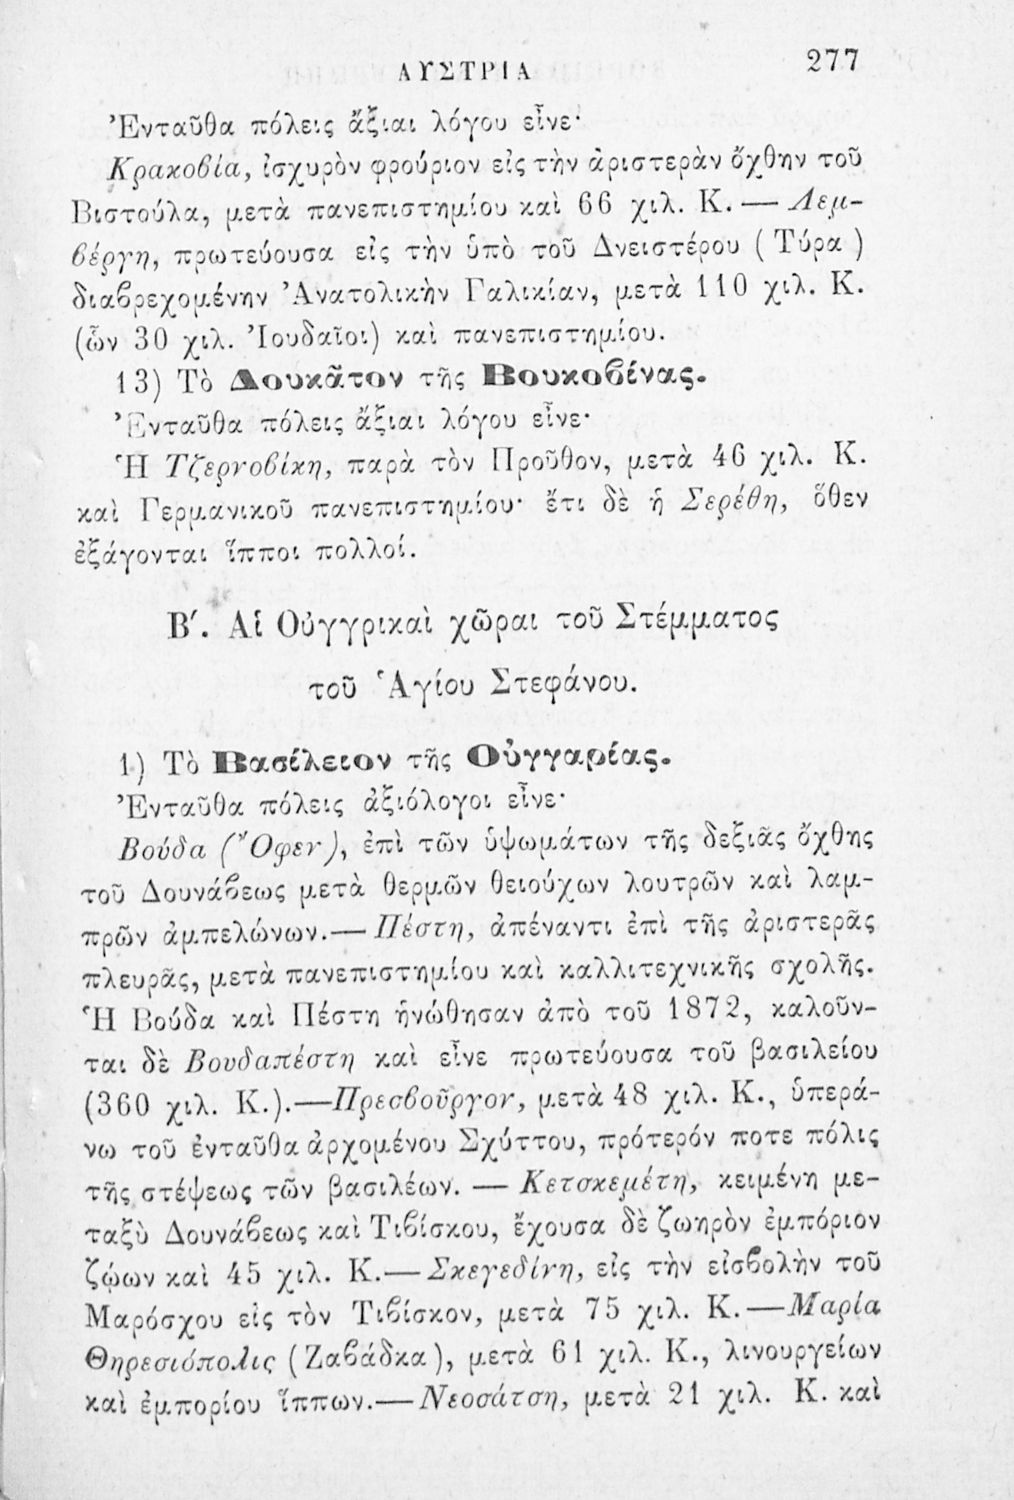 ΑΥΣΤΡΙΑ 277
Ἐνταῦθα πόλεις ἄξιαι λόγου εἶνε·
Κρακοβία, ἰσχυρὸν φρούριον εἰς τὴν ἀριστερὰν ὄχθην τοῦ
Βιστούλα, μετὰ πανεπιστημίου καὶ 66 χιλ. Κ.— Λεμ-
βέργη, πρωτεύουσα εἰς τὴν ὑπὸ τοῦ Δνειστέρου (Τύρα)
διαβρεχομένην Ἀνατολικὴν Γαλικίαν, μετὰ 110 χιλ. Κ.
(ὧν 30 χιλ. Ἰουδαῖοι) καὶ πανεπιστημίου.
13) Τὸ Δουκᾶτον τῆς Βουκοβίνας.
Ἐνταῦθα πόλεις ἄξιαι λόγου εἶνε·
Ἡ Τζερνοβίκη, παρὰ τὸν Προῦθον, μετὰ 46 χιλ. Κ.
καὶ Γερμανικοῦ πανεπιστημίου· ἔτι δὲ ἡ Σερέθη, ὅθεν
ἐξάγονται ἵπποι πολλοί.
Β΄. Αἱ Οὐγγρικαὶ χῶραι τοῦ Στέμματος
τοῦ Ἁγίου Στεφάνου.
1) Τὸ Βασίλειον τῆς Οὐγγαρίας.
Ἐνταῦθα πόλεις ἀξιόλογοι εἶνε·
Βούδα (Ὄφεν), ἐπὶ τῶν ὑψωμάτων τῆς δεξιᾶς ὄχθης
τοῦ Δουνάβεως μετὰ θερμῶν θειούχων λουτρῶν καὶ λαμ-
πρῶν ἀμπελώνων.— Πέστη, ἀπέναντι ἐπὶ τῆς ἀριστερᾶς
πλευρᾶς, μετὰ πανεπιστημίου καὶ καλλιτεχνικῆς σχολῆς.
Ἡ Βούδα καὶ Πέστη ἡνώθησαν ἀπὸ τοῦ 1872, καλοῦν-
ται δὲ Βουδαπέστη καὶ εἶνε πρωτεύουσα τοῦ βασιλείου
(360 χιλ. Κ.).—Πρεσβοῦργον, μετὰ 48 χιλ. Κ., ὑπερά-
νω τοῦ ἐνταῦθα ἀρχομένου Σχύττου, πρότερόν ποτε πόλις
τῆς στέψεως τῶν βασιλέων. — Κετσκεμέτη, κειμένη με-
ταξὺ Δουνάβεως καὶ Τιβίσκου, ἔχουσα δὲ ζωηρὸν ἐμπόριον
ζῴων καὶ 45 χιλ. Κ.—Σκεγεδίνη, εἰς τὴν εἰσβολὴν τοῦ
Μαρόσχου εἰς τὸν Τιβίσκον, μετὰ 75 χιλ. Κ.—Μαρία
Θηρεσιόπολις (Ζαβάδκα), μετὰ 61 χιλ. Κ., λινουργείων
καὶ ἐμπορίου ἵππων.—Νεοσάτση, μετὰ 21 χιλ. Κ. καὶ